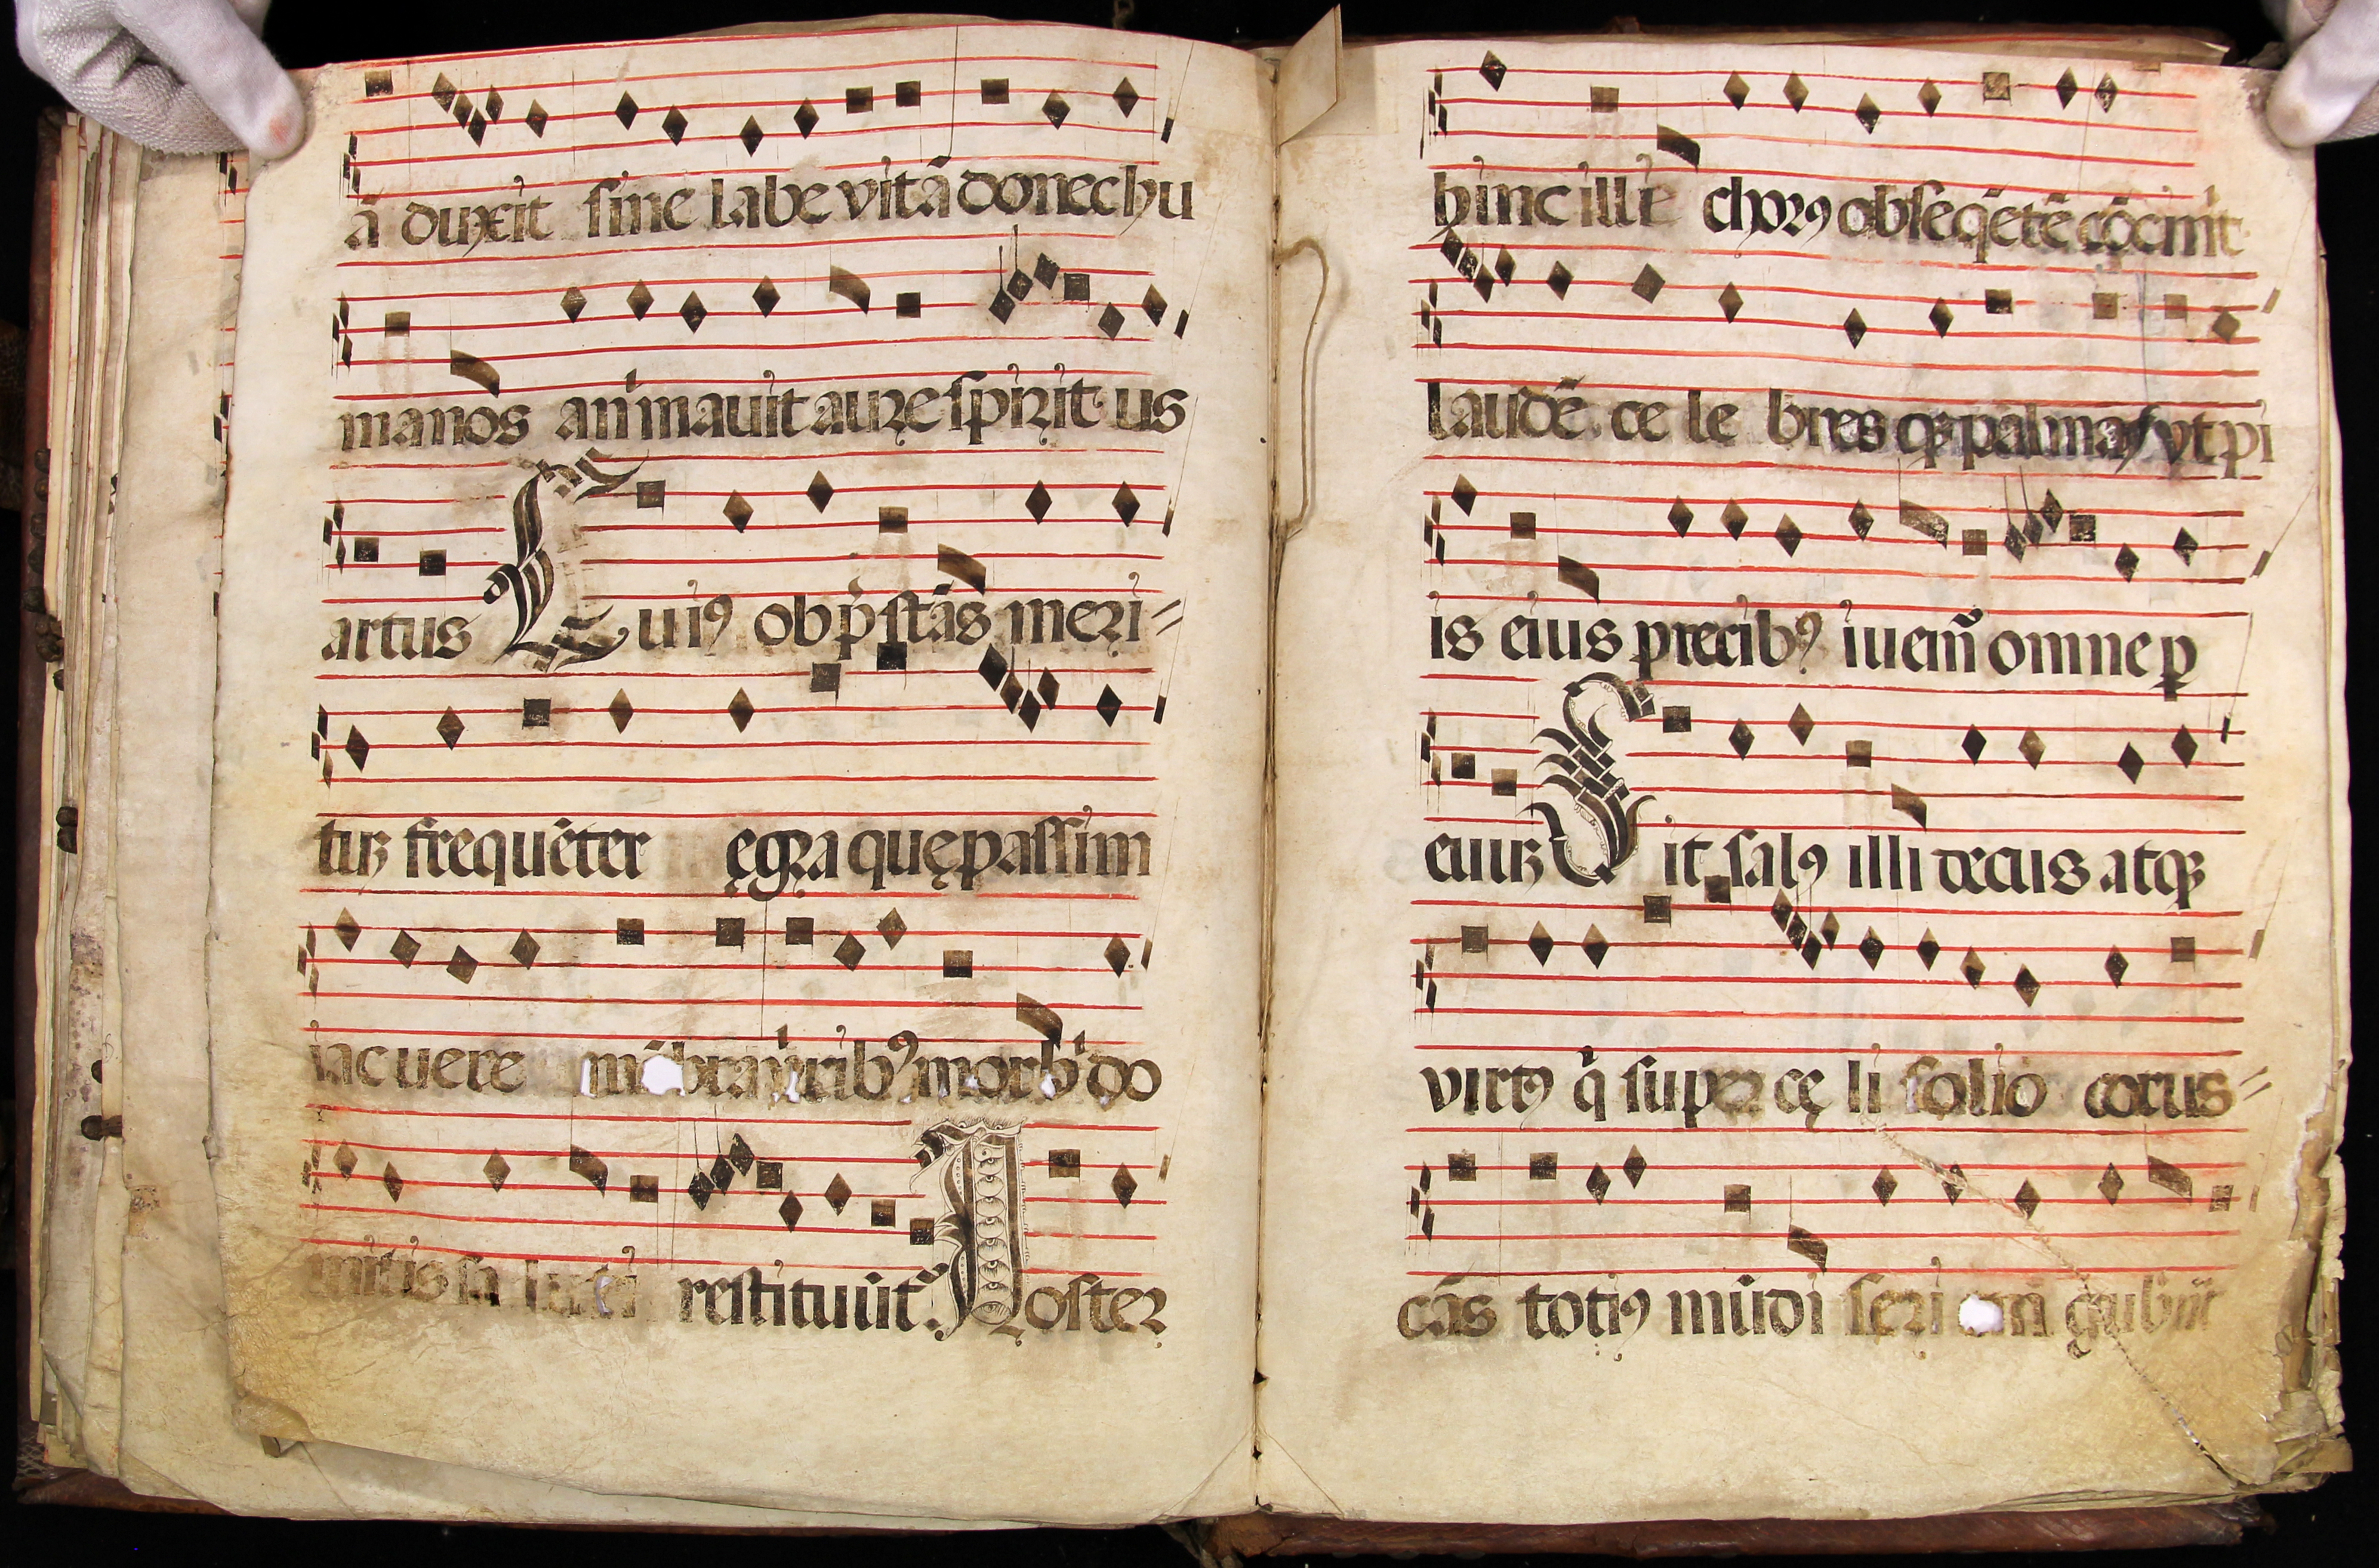 ā duxit sine labe vitā donec hu
manos animauit aure spirit us
artus Cuiꝰ ob p̄stās meri⸗
tuꝫ frequēter ęgra quę passim
iacuere mēbra viribꝰ morbi do
mitis sa luti restituūt᷑ Noster
hinc illi chorꝰ obseq̄etē cōcinit
laudē ce le bres qꝫ palmas vt pi
is eius precibꝰ iuem̄ omne ꝑ
euuꝫ Sit salꝰ illi decus atqꝫ
virtꝰ q̄ super cę li solio corus⸗
cās totiꝰ mūdi seri em̄ gubn̄t